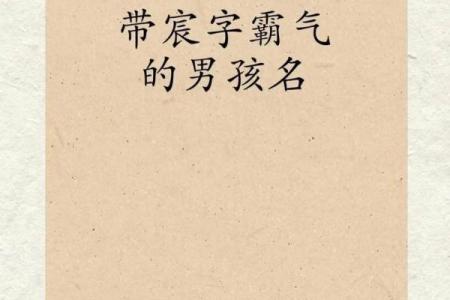 带宸字霸气
的男孩名